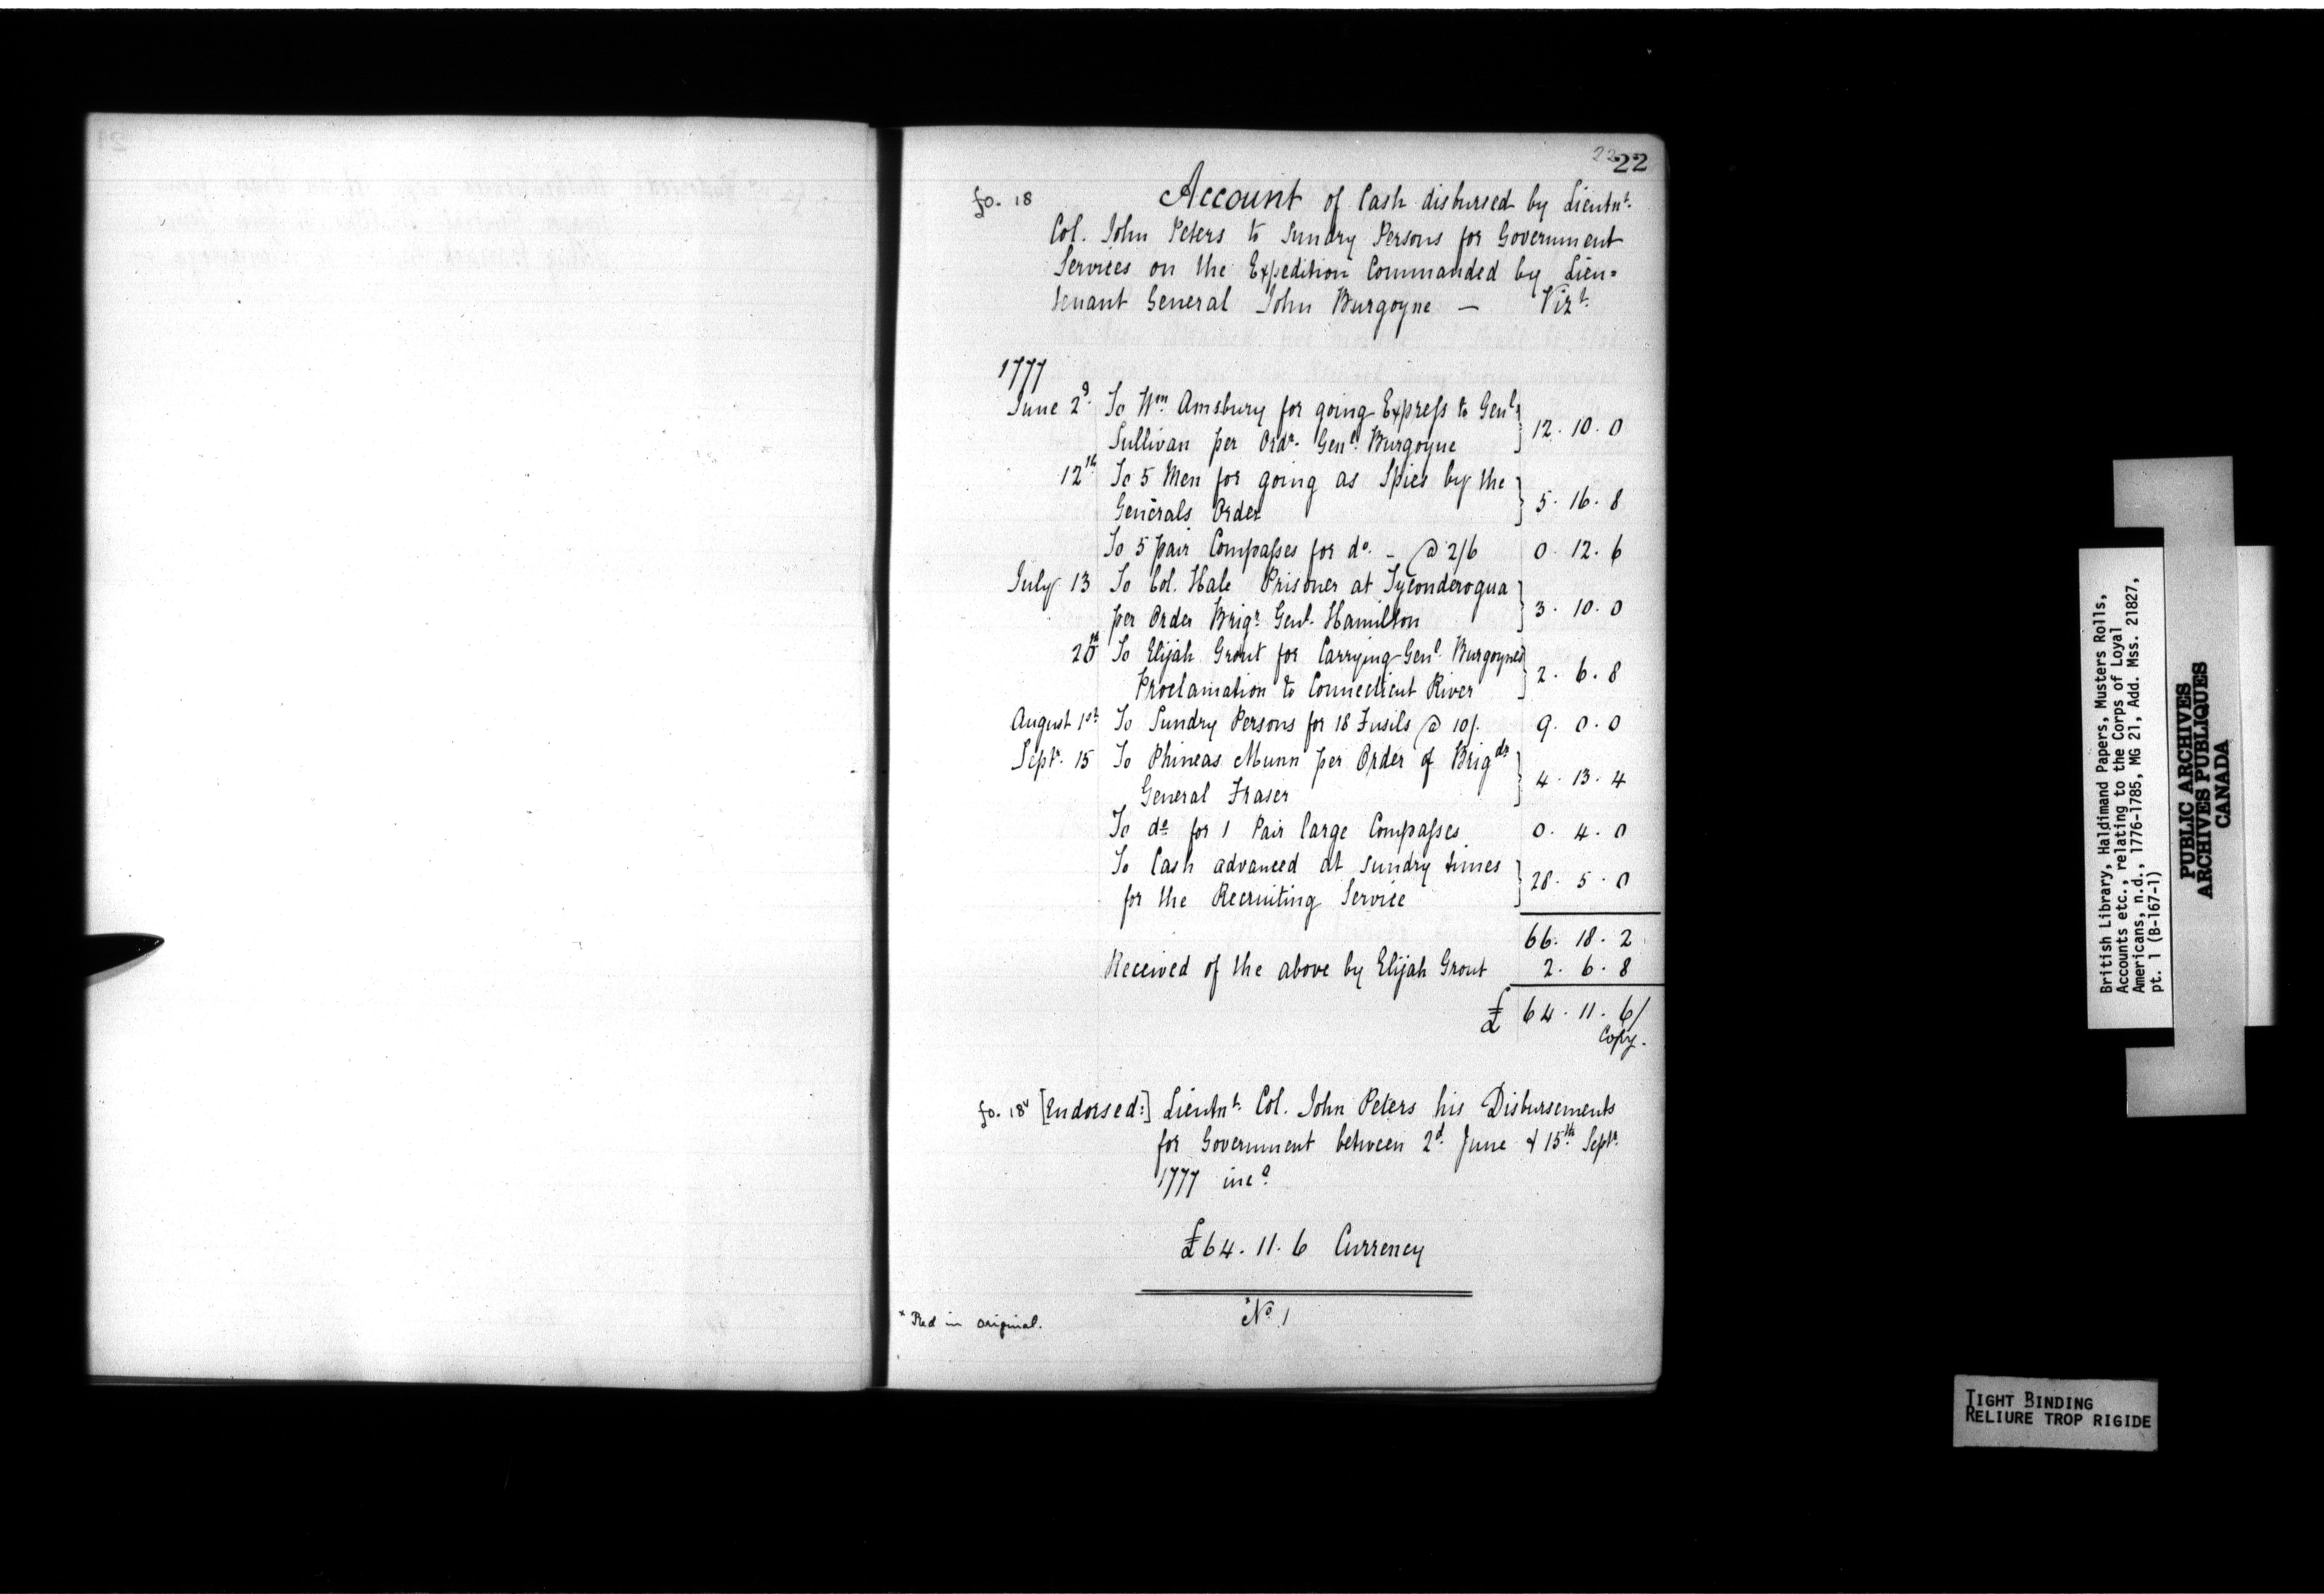 22 22
fo. 18 Account of Cash disbursed by Lieutnt.
Col. John Peters to Sundry Persons for Government
Services on the Expedition Commanded by Lieu=
tenant General John Burgoyne — Vizt.
1777
June 2d. To Wm. Amsbury for going Express to Genl. 12. 10. 0
Sullivan per Ordr. Genl. Burgoyne
12th. To 5 Men for going as Spies by the 5. 16. 8
Generals Order
To 5 pair Compasses for do. - @ 2/6 0. 12. 6
July 13 To Col. Hale Prisoner at Tyconderogua 3. 10. 0
per Order Brigr. Genl. Hamilton
20th To Elijah Grout for Carrying Genl. Burgoynes 2. 6. 8
Proclamation to Connecticut River
August 1st. To Sundry Persons for 18 Fusils @ 10/. 9. 0. 0
Septr. 15 To Phineas Munn per Order of Brigdr 4. 13. 4
General Fraser
To do for 1 Pair large Compasses 0. 4. 0
To Cash advanced at sundry times 28. 5. 0
for the Recruiting Service
66. 18. 2
Received of the above by Elijah Grout 2. 6. 8
£ 64. 11. 6/
Copy.
fo. 18v [Endorsed:] Lieutnt. Col. John Peters his Disbursements
for Government between 2d. June & 15th. Septr.
1777 inc.
£64. 11. 6 Currency
*No. 1
* Red in original.
British Library, Haldimand Papers, Musters Rolls,
Accounts etc., relating to the Corps of Loyal
Americans, n.d., 1776-1785, MG 21, Add. Mss. 21827,
pt. 1 (B-167-1)
PUBLIC ARCHIVES
ARCHIVES PUBLIQUES
CANADA
TIGHT BINDING
RELIURE TROP RIGIDE